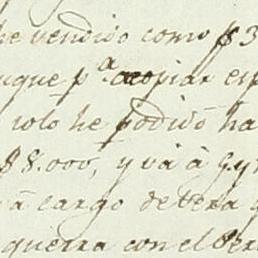 he vendido como $3
uque pª acopiar esp
solo he podido ha
$8.000, y va à Gy
à cargo de Vera
guerra con el Per